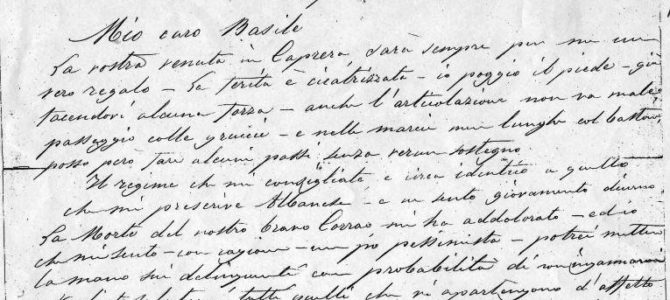 Mio caro Basile
La vostra venuta in Caprera sarà sempre per me un
vero regalo - La ferita è cicatrizzata - io poggio il piede - già
facendovi alcuna forza - anche l'articolazione non va male
passeggio colle gruccie - e nelle marcie non lunghe col bastone
posso però fare alcuni passi senza verun sostegno
Il regime che mi consigliate è circa identico a quello
che mi prescrive Albanese - e ne sento giovamento
La Morte del nostro bravo Corrao mi ha addolorato - ed io
che mi sento - con ragione - un pò pessimista - potrei metter
la mano sui delinquenti con probabilità di non ingannarmi
a tutti quelli che vi appartengono d'affetto